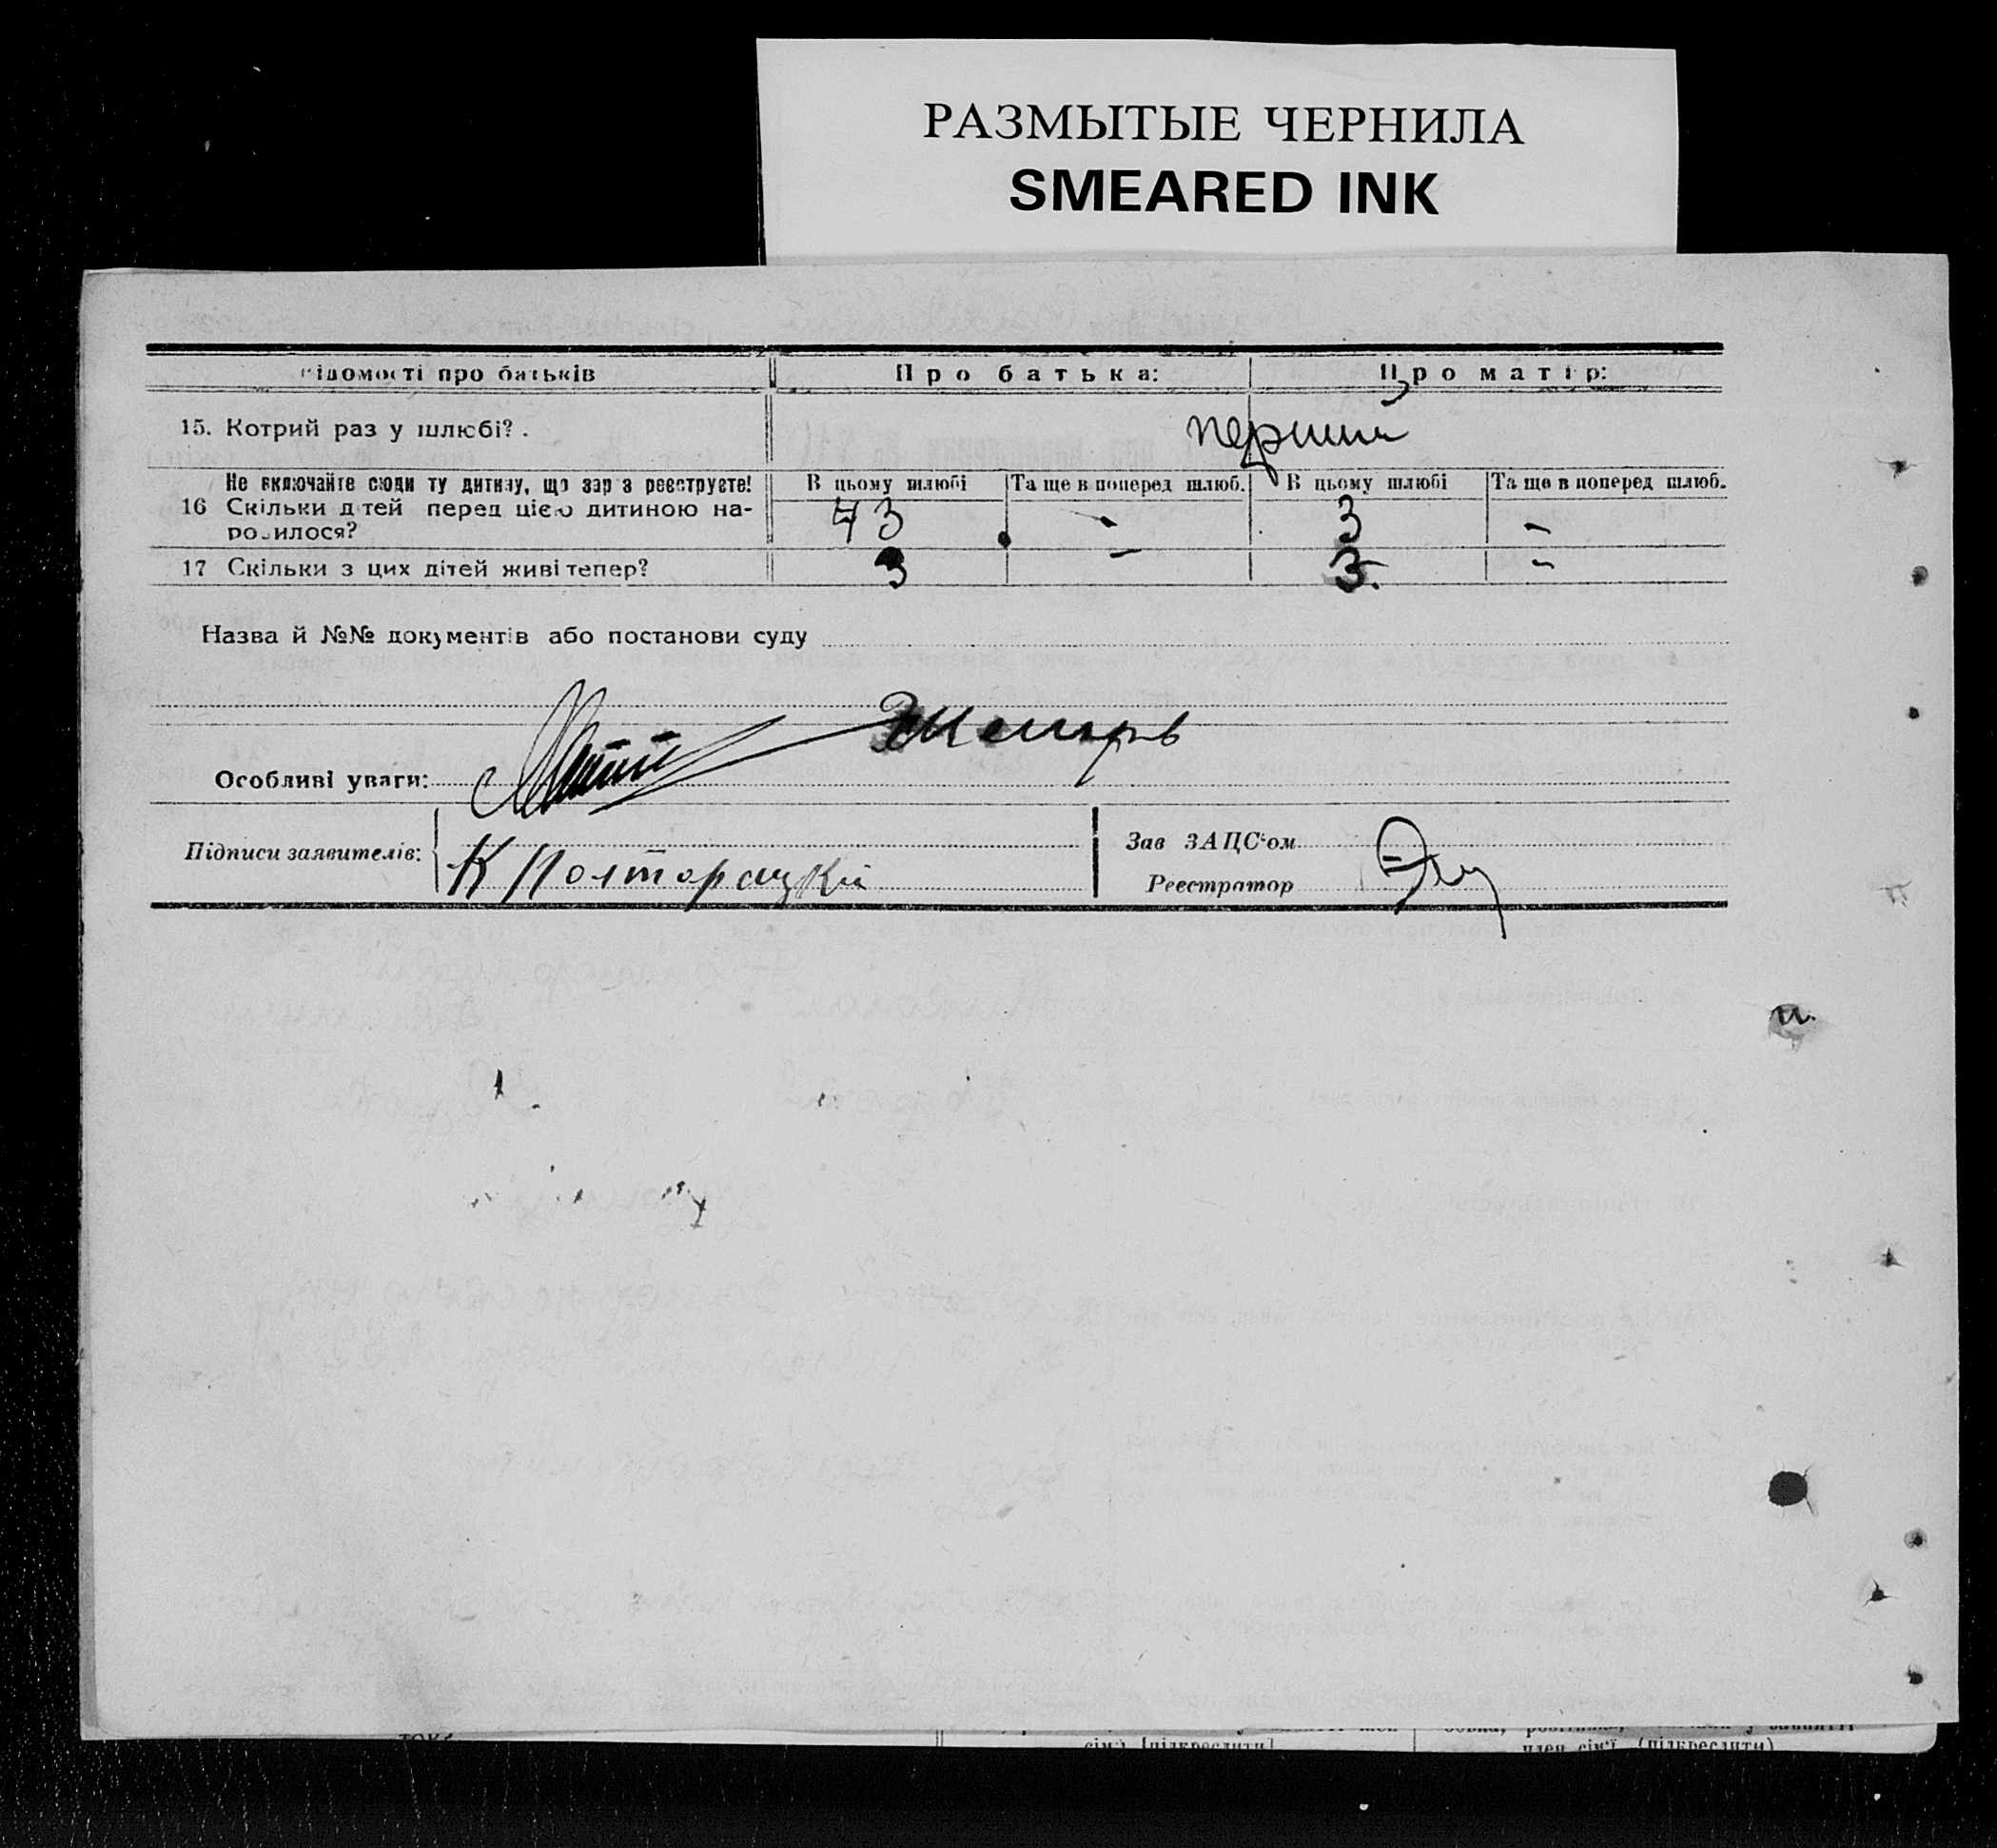 РАЗМЫТЫЕ ЧЕРНИЛА
SMEARED INK
ідомості про батьків Про батька: Про матір:
15. Котрий раз у шлюбі? . перший
Не включайте сюди ту дитину, що зар з реєструєте! В цьому шлюбі Та ще в поперед шлюб. В цьому шлюбі Та ще в поперед шлюб.
16 Скільки дітей перед цією дитиною на- 3 - 3 -
родилося?
17 Скільки з цих дітей живі тепер? 3 - 3. -
Назва й №№ документів або постанови суду
Особливі уваги:
Підписи заявителів: К Полторацкій
Зав ЗАЦС‘ом
Реєстратор
и.
сім'ї (підкреслити)
член сім'ї (підкреслити)